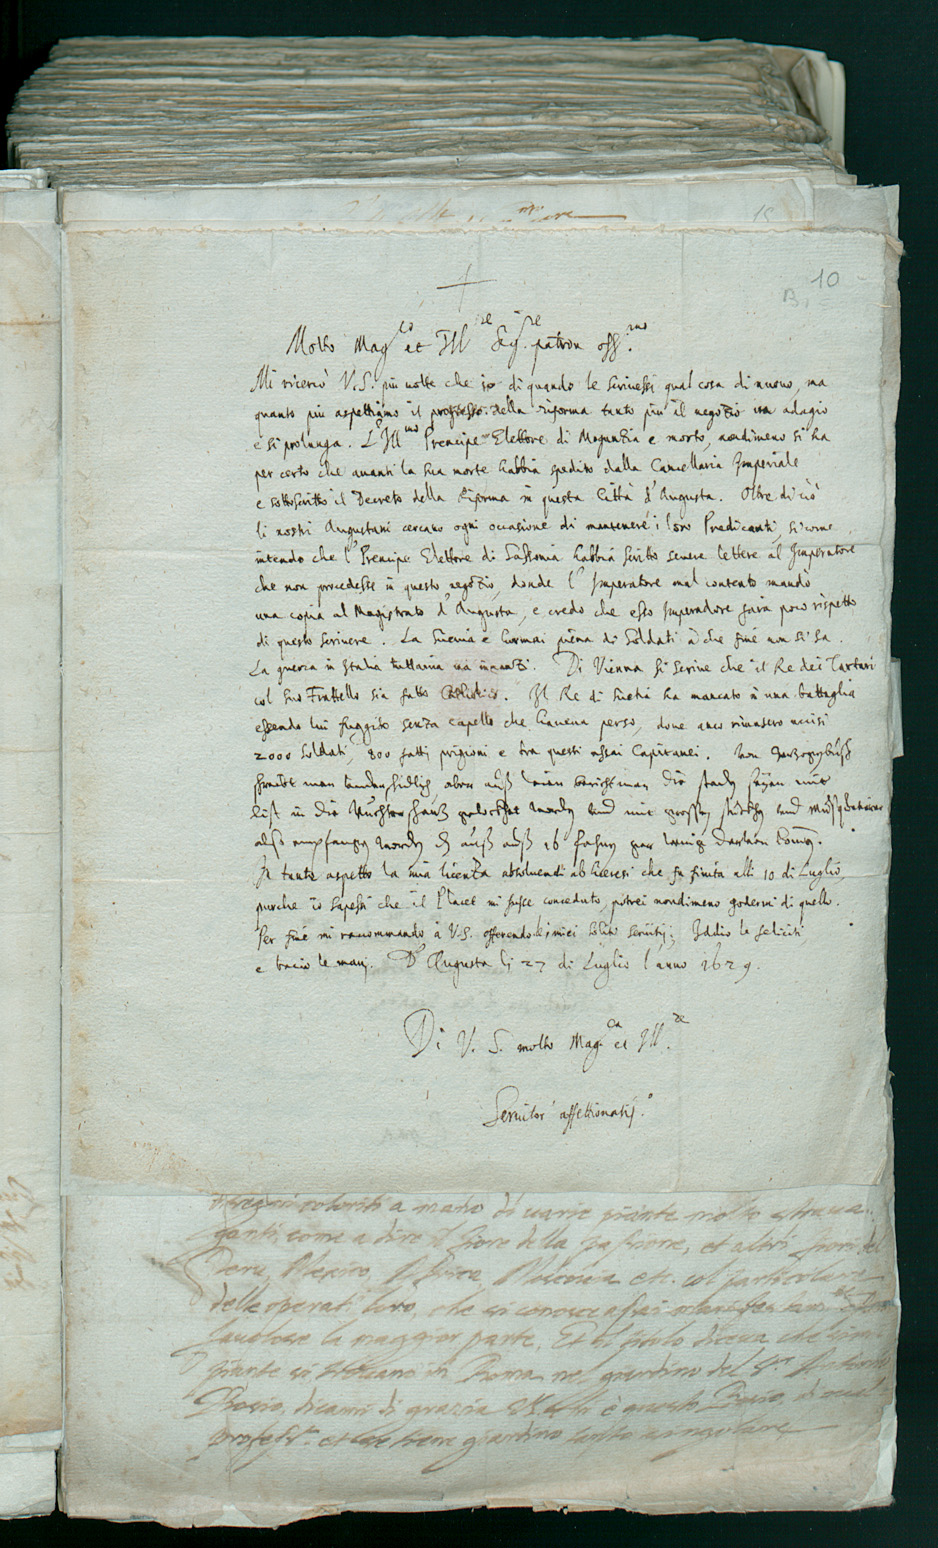 10
Molto Mag.co et Ill.re Sig.re patron oss.mo
Mi ricercò V.S. più uolte che io di quando le scriuessi qual cosa di nuouo, ma
quanto più aspettiamo il progresso della riforma tanto più il negozio ua adagio
e si prolunga. L'Ill.mo Prencipe Elettore di Magunzia e morto, nondimeno si ha
per certo che auanti la sua morte habbia spedito dalla Cancellaria Imperiale
e sottoscritto il Decreto della Riforma in questa Città d'Augusta. Oltre di ciò
li nostri Augustani cercano ogni occasione di mantenere i loro Predicanti, si come
intendo che l'Prencipe Elettore di Sassonia habbia scritto seuere lettere al Imperatore
che non procedesse in questo negozio, donde l'Imperatore mal contento mandò
una copia al Magistrato d'Augusta, e credo che esso Imperadore farà poco rispetto
di questo scriuere. La Sueuia e hormai piena di Soldati à che fine non si sa.
La guerra in Italia tuttauia uà inanzi. Di Vienna si scriue che il Re dei Tartari
col suo Frattello sia fatto. Il Re di Suetia ha mancato in una battaglia
essendo lui fuggito senza capello che haueua perso, doue anco rimasero uccisi
2000 Soldati, 800 fatti prigioni e tra questi assai Capitanei. Von
man aber auß die
list in die und mit grossen und
also empfangen worden auß 16 gar wenig
In tanto aspetto la mia licenza absoluendi ab heresi che fu finita alli 10 di Luglio,
purche io sapessi che il Placet mi fusse conceduto, potrei nondimeno godermi di quello.
Per fine mi raccommando à V.S. offerendole i miei soliti seruitij; Iddio la feliciti
e bacio le mani. D'Augusta li 27 di Luglio l'anno 1629.
Di V. S. molto Mag.ca et Ill.re
Seruitor affettionatis.o
coloriti a mano di uarie piante molto straua
ganti, come a dire il fiore della passione, et altri fiori del
Peru, Messico, etc. col particolare
delle operati loro, che si conosce assai
fauolose la maggior parte. Et il
piante si trouano in Roma nel giardino del S.r
Bosio, dicami di grazia è questo Bosio, di
profess.e et se tiene giardino molto singolare